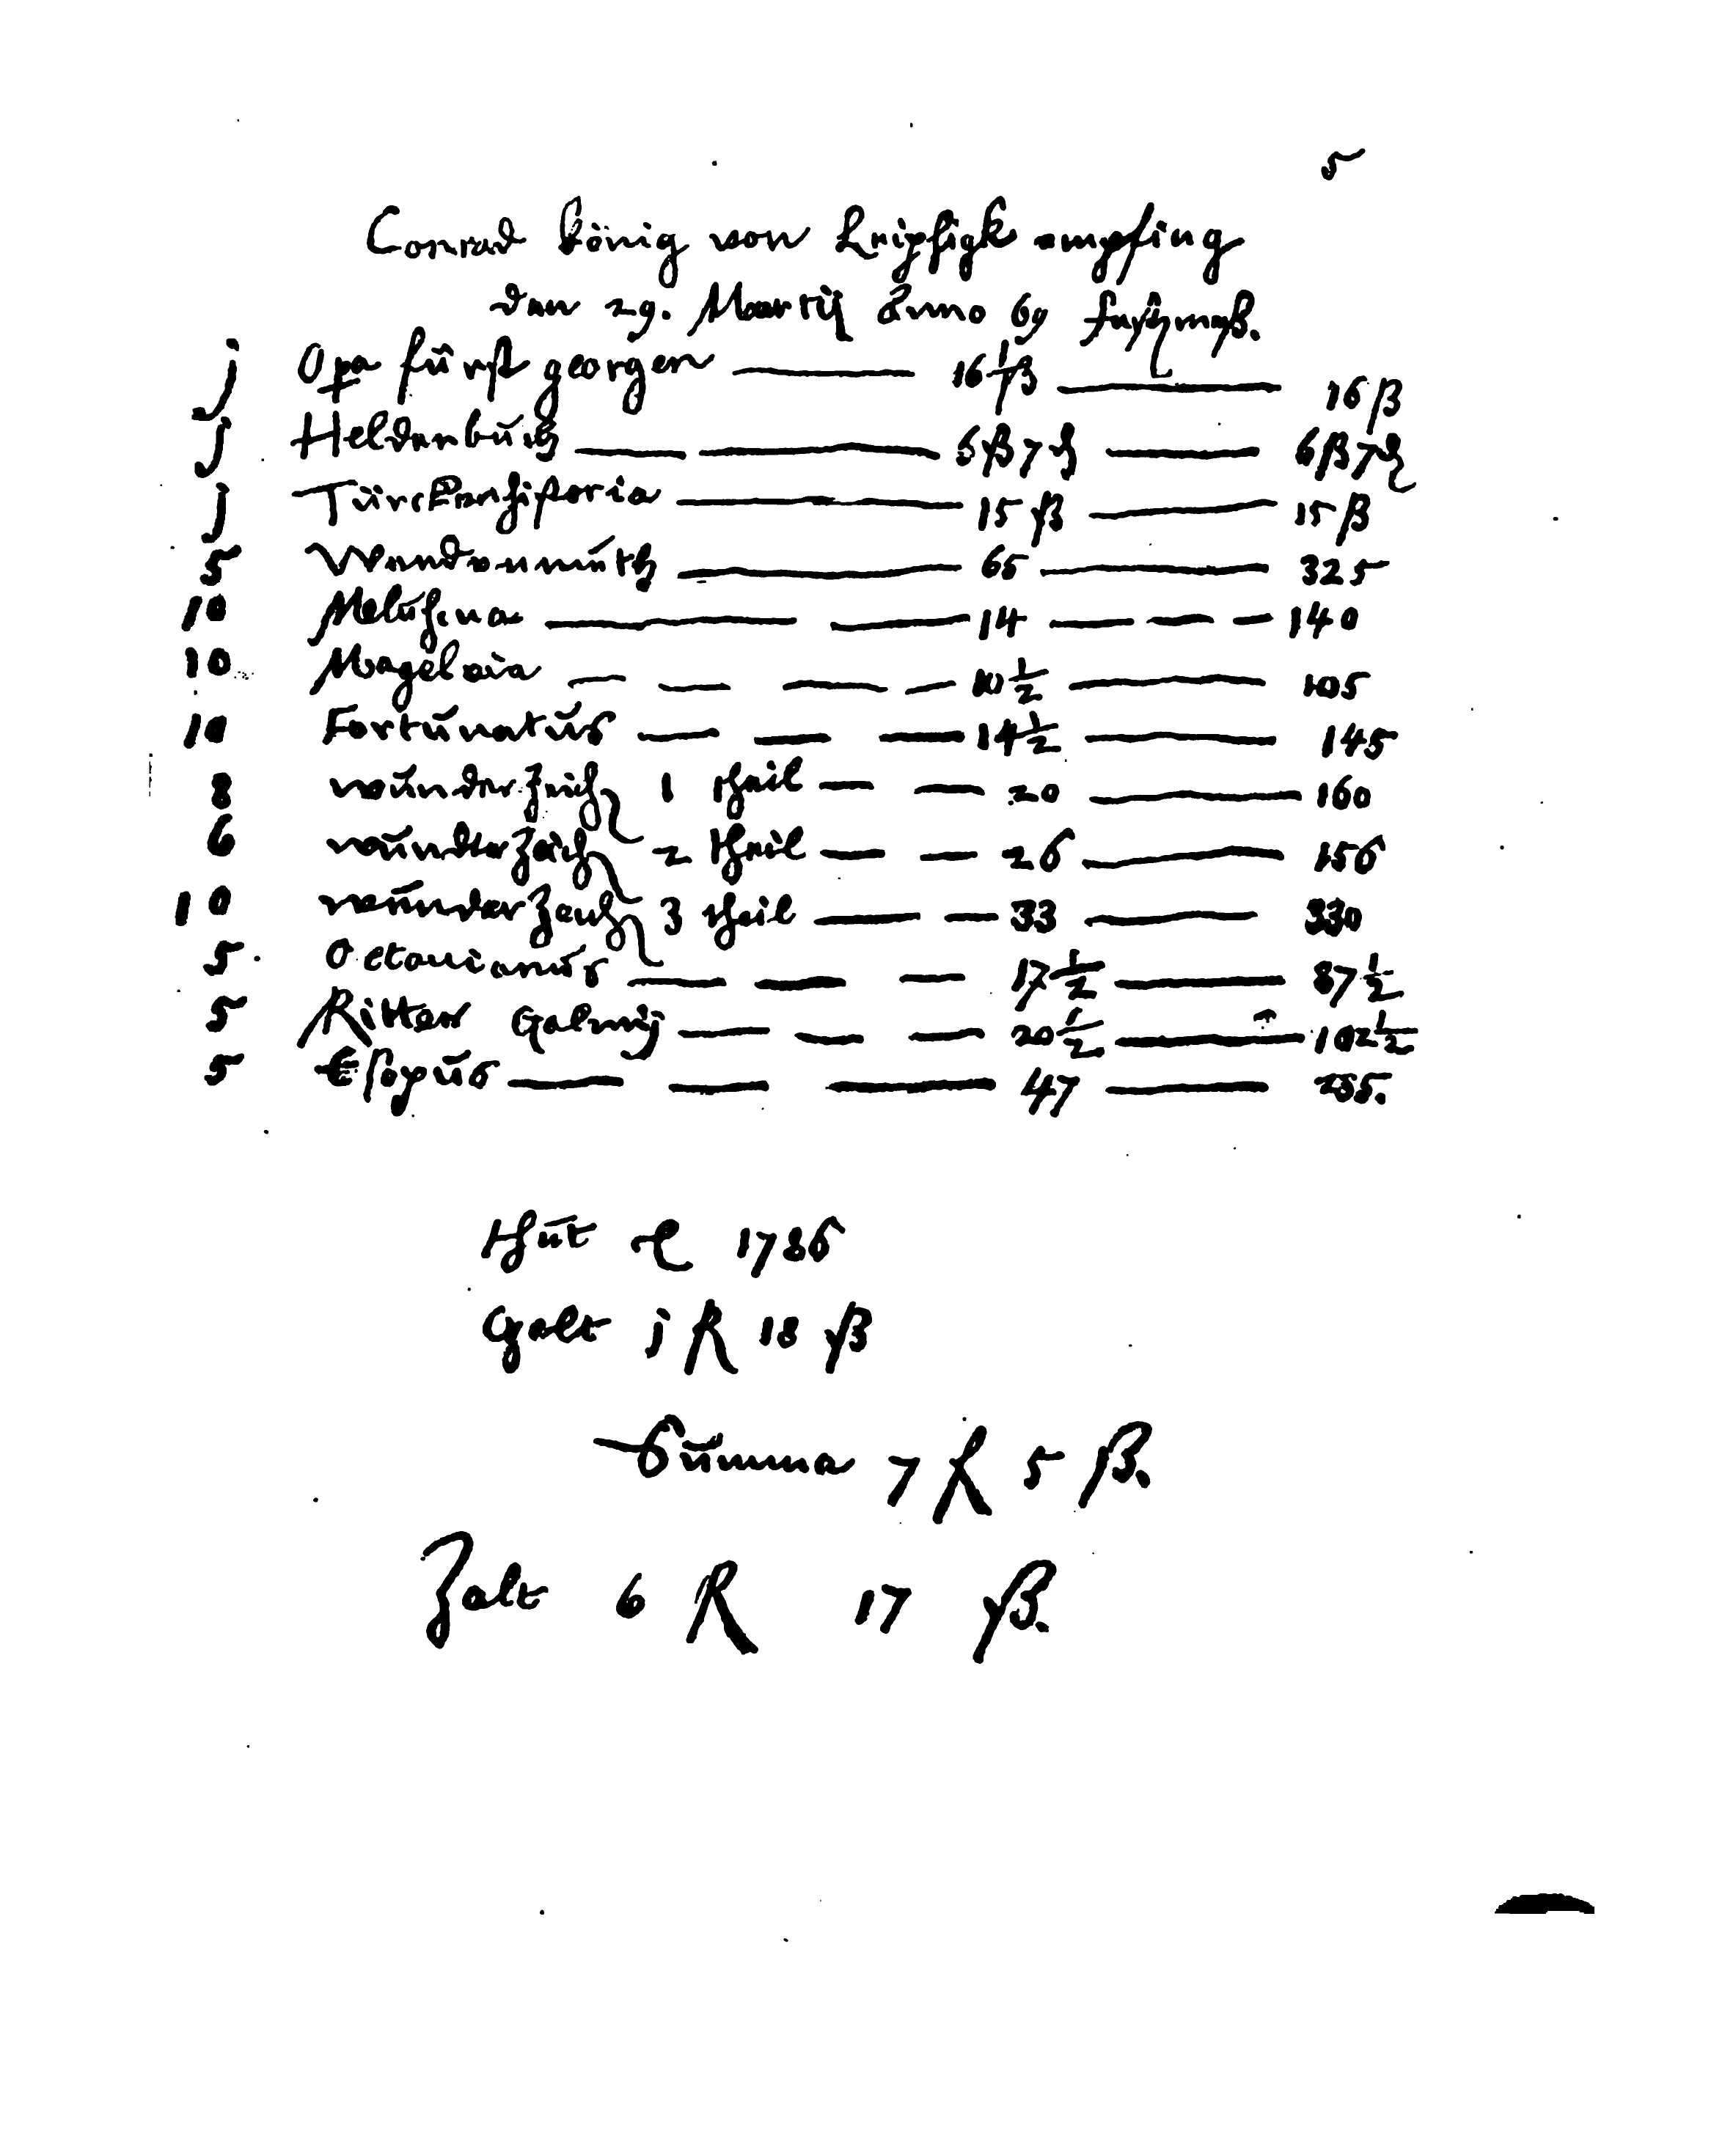 5
Conrad König von Leipsigk empfing
den 29. Martij Anno 69 fastenmeß.
j Opa fürst georgen — 16 ½ ß — 16 ß
j Heldenbuch — 6 ß 7 ₰ — 6 ß 7 ₰
j Türckenhistoria — 15 ß — 15 ß
5 Wendvnmuth — 65 — 325
10 Melusina — 14 — 140
10 Magelona — 10 ½ — 105
10 Fortunatus — 14 ½ — 145
8 1 theil — 20 — 160
6 2 theil — 26 — 156
10 3 theil — 33 — 330
5 Octauianus — 17 ½ — 87 ½
5 Ritter Galmij — 20 ½ — 102 ½
5 Esopus — 47 — 235.
thut 1786
Gelt j fl 18 ß
Summa 7 fl 5 ß.
Zalt 6 fl 17 ß.